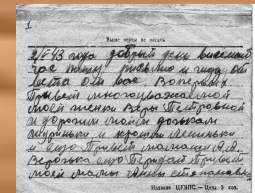 1
Выше черты не писать
2/VI 43 года добрый день
час пишу письмо и
от вас Вопервых
Привет многоуважаемой
моей женки Веры Петровной
и дорогим моим дочкам
и кроши
и ещо Привет мамаши
Верочка ещо Передай Привет
моей мамы Анны Степановне
Издание ЦУВПС. — Цена 5 коп.